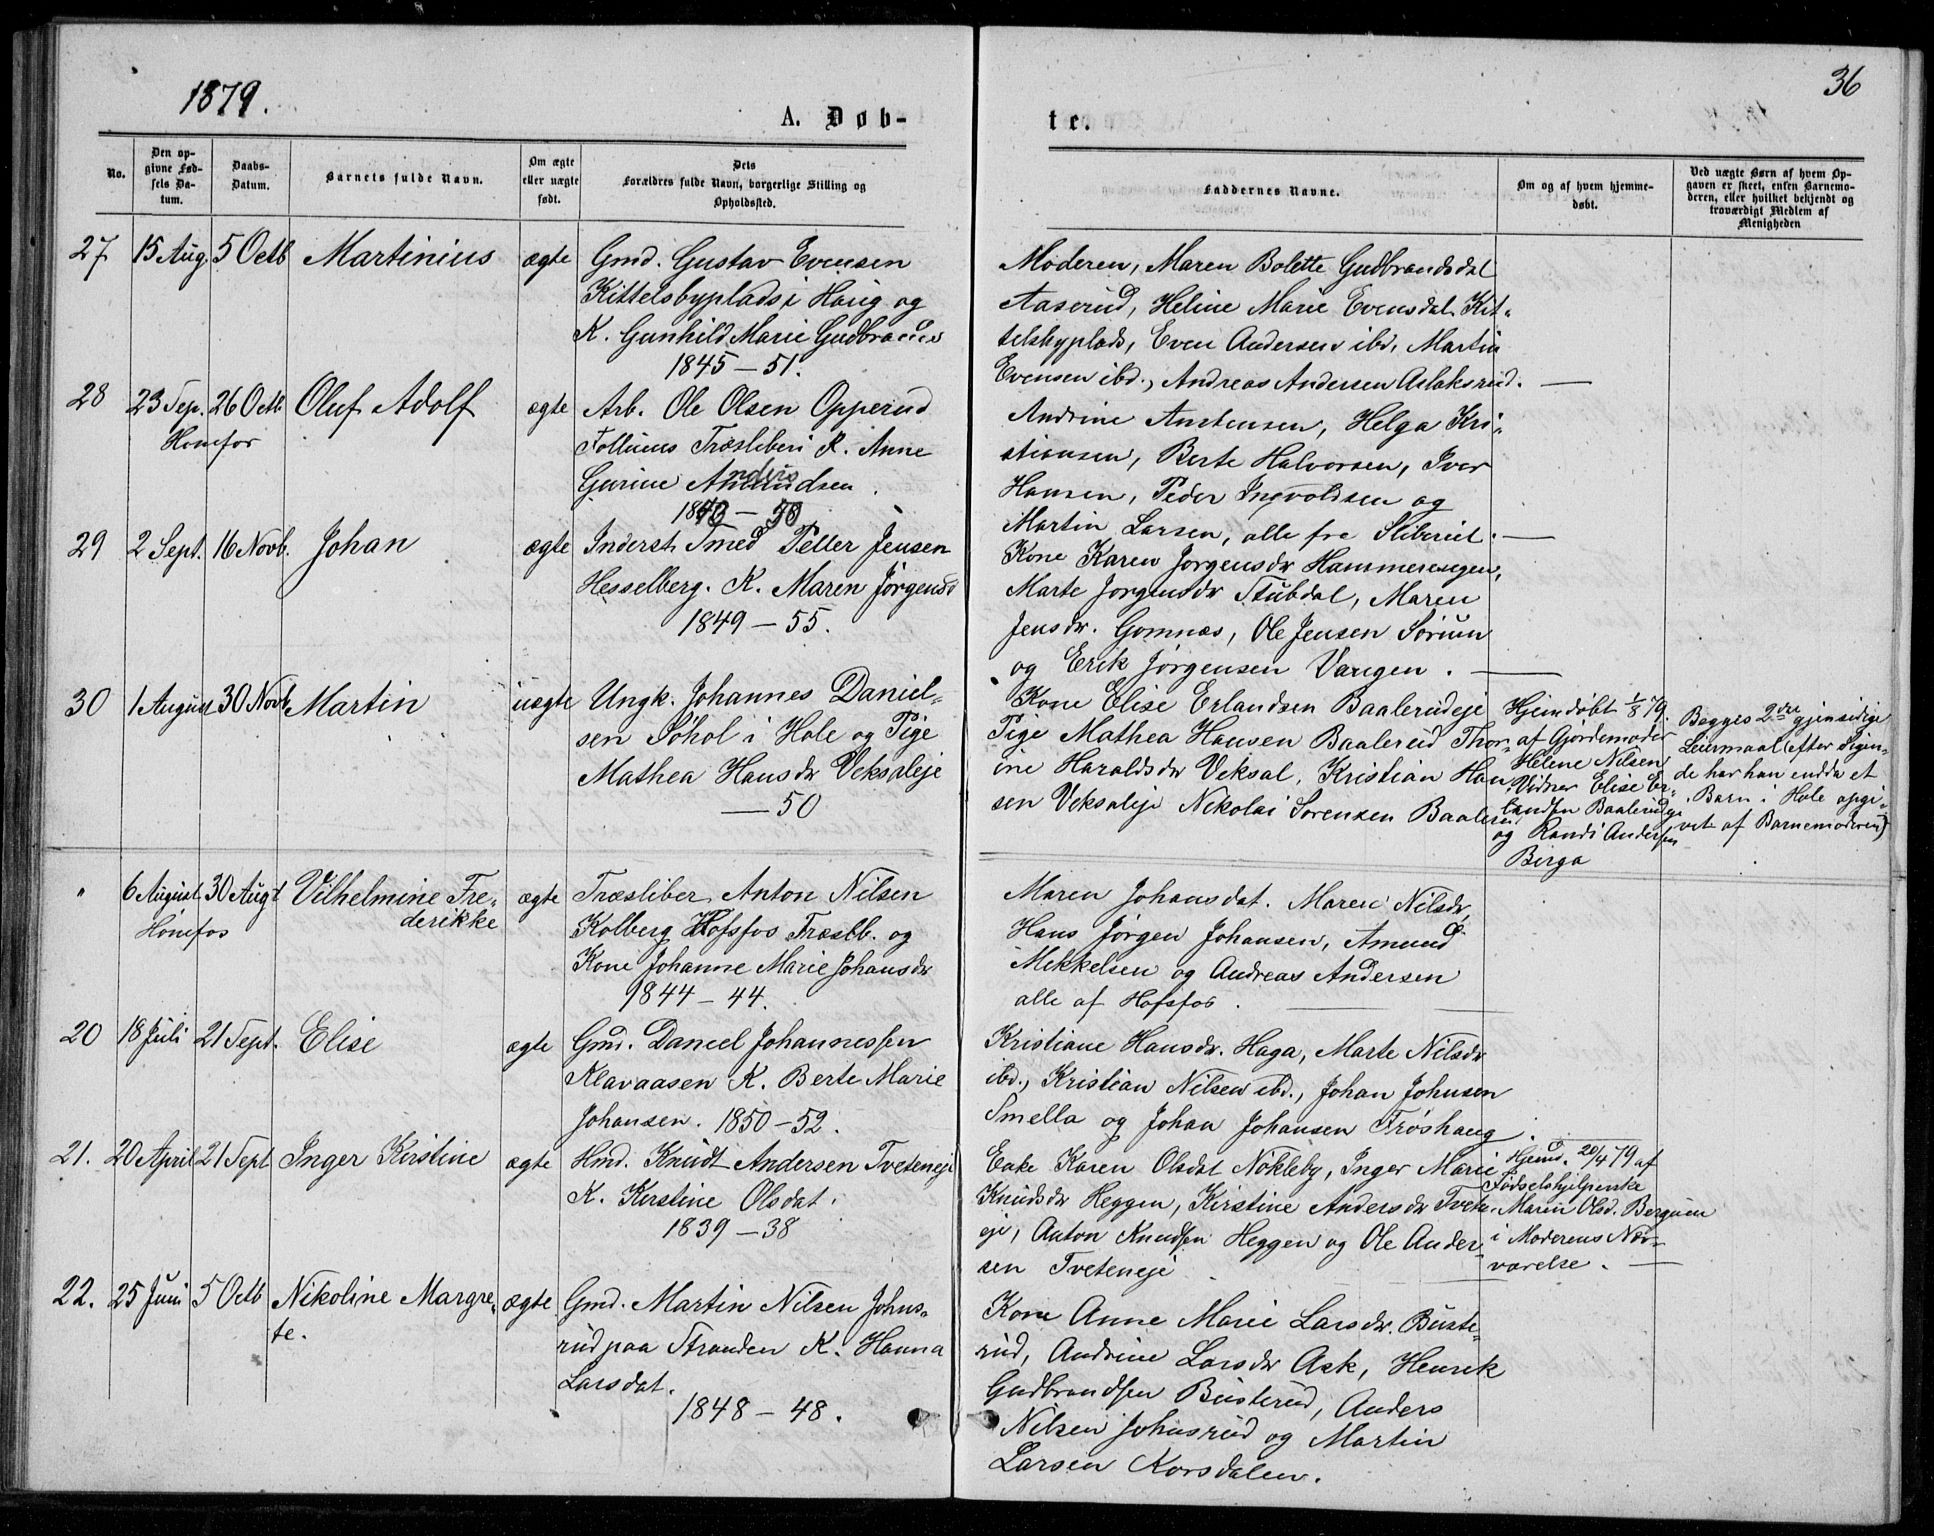 1879.
36
A. Døb-
te.
No.
Den op-
givne Fød-
sels Da-
tum.
Daabs-
Datum.
Barnets fulde Navn.
Om ægte
eller uægte
født.
Dets
Forældres fulde Navn, borgerlige Stilling og
Opholdssted.
Faddernes Navne.
Om og af hvem hjemme-
døbt.
Ved uægte Børn af hvem Op-
gaven er skeet, enten Barnemo-
deren, eller hvilket bekjendt og
troværdigt Medlem af
Menigheden
27 15 Aug. 5 Octb Martinius ægte Gmd. Gustav Evensen
Kittelsbyplads i Haug og
K. Gunhild Marie Gudbrands
1845 – 51.
Moderen, Maren Bolette Gudbrandsdat
Aaserud, Heline Marie Evensdat. Kit-
telsbyplads, Even Andersen ibd, Martin
Evensen ibd., Andreas Andersen Aslaksrud.
28 23 Sep. 26 Octb. Oluf Adolf ægte Arb. Ole Olsen Opperud
Hønefos
Follums Træsliberi K. Anne
Gurine Amundsen
Anders
Andrine Anstensen, Helga Kri-
stiansen, Berte Halvorsen, Iver
Hansen, Peder Ingvoldsen og
Martin Larsen, alle fra Sliberiet.
29 2 Sept. 16 Novb. Johan ægte Inderst Smed Peller Jensen
Hesselberg. K. Maren Jørgensd
1849 – 55.
Kone Karen Jørgensdr Hammerengen,
Marte Jorgensdr Stubdal, Maren
Jensdr. Gomnæs, Ole Jensen Sørum
og Erik Jørgensen Vangen.
30 1 August 30 Novb. Martin uægte Ungk. Johannes Daniel-
sen Søhol i Hole og Pige
Mathea Hansdr Veksaleje
– 50
Kone Elise Erlandsen Baalerudeje
Pige Mathea Hansen Baalerud Thor-
ine Haraldsdr Veksal, Kristian Han
sen Veksaleje Nikolai Sorensen Baalerud
Hjemdøbt 1/8 79.
af Gjordemoder
Helene Nilsen
Vidner Elise Er-
landsen Baalerudeje
og Randi Andersen
Birga
Begges 2dre gjensidige
Leiermaal (efter Sigen-
de har han endda et
Barn i Hole opgi-
vet af Barnemoderen)
" 6 August 30 Augt Vilhelmine Fre-
derikke
Hønefos
ægte Træsliber Anton Nilsen
Kolberg Hofsfos Træslb. og
Kone Johanne Marie Johansdr
1844 – 44.
Maren Johansdat. Maren Nilsdr,
Hans Jørgen Johansen, Amund
Mikkelsen og Andreas Andersen
alle af Hofsfos.
20 18 Juli 21 Sept. Elise ægte Gmd. Daniel Johannessen
Klavaasen K. Berte Marie
Johansen. 1850 – 52.
Kristiane Hansdr. Haga, Marte Nilsdr
ibd., Kristian Nilsen ibd., Johan Johnsen
Smella og Johan Johansen Frøshaug.
21. 20 April 21 Sept Inger Kirstine ægte Hmd. Knudt Andersen Tveteneje
K. Kirstine Olsdat.
1839 – 38
Enke Karen Olsdat Nøkleby, Inger Marie
Knudsdr Heggen, Kirstine Andersdr Tvete-
eje, Anton Knudsen Heggen og Ole Ander-
sen Tveteneje
Hjemd. 20/4 79 af
Fødselshjelperske
Maren Olsd. Berguen
i Moderens Nær-
værelse.
22. 25 Juni 5 Octb Nikoline Margre-
te.
ægte Gmd. Martin Nilsen Johns-
rud paa Stranden K. Hanna
Larsdat.
1848 – 48.
Kone Anne Marie Larsdr. Buste-
rud, Andrine Larsdr Ask, Henrik
Gudbrandsen Busterud, Anders
Nilsen Johnsrud og Martin
Larsen Korsdalen.